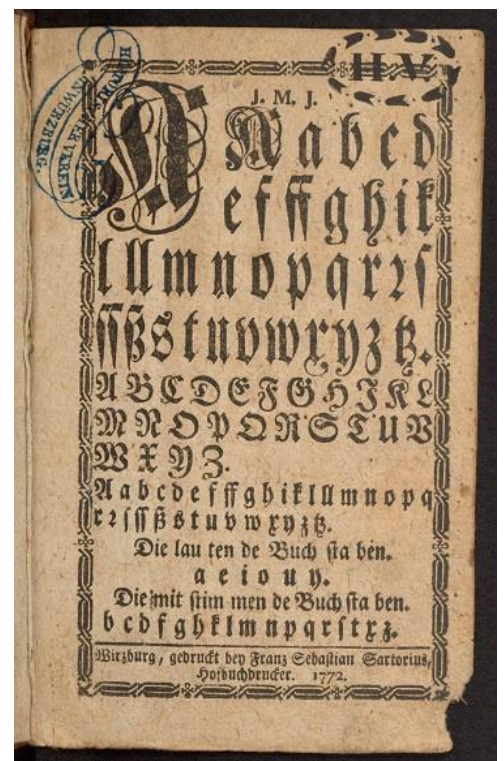 H V
J. M. J.
A A a b c d
e f ff g h i k
l ll m n o p q r ꝛ ſ
ſſ ß s t u v w x y z tz.
A B C D E F G H J K L
M N O P Q R S T U V
W X Y Z.
A a b c d e f ff g h i k l ll m n o p q
r ꝛ ſ ſſ ß s t u v w x y z tz.
Die lau ten de Buch ſta ben.
a e i o u y.
Die mit ſtim men de Buch ſta ben.
b c d f g h k l m n p q r ſ t x z.
Wirzburg, gedruckt bey Franz Sebaſtian Sartorius,
Hofbuchdrucker. 1772.